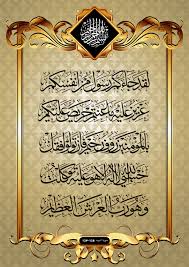 بسم الله الرحمن الرحيم
لقد جاءكم رسول من أنفسكم
عزيز عليه ما عنتم حريص عليكم
بالمؤمنين رءوف رحيم فإن تولوا فقل
حسبي الله لا إله إلا هو عليه توكلت
وهو رب العرش العظيم